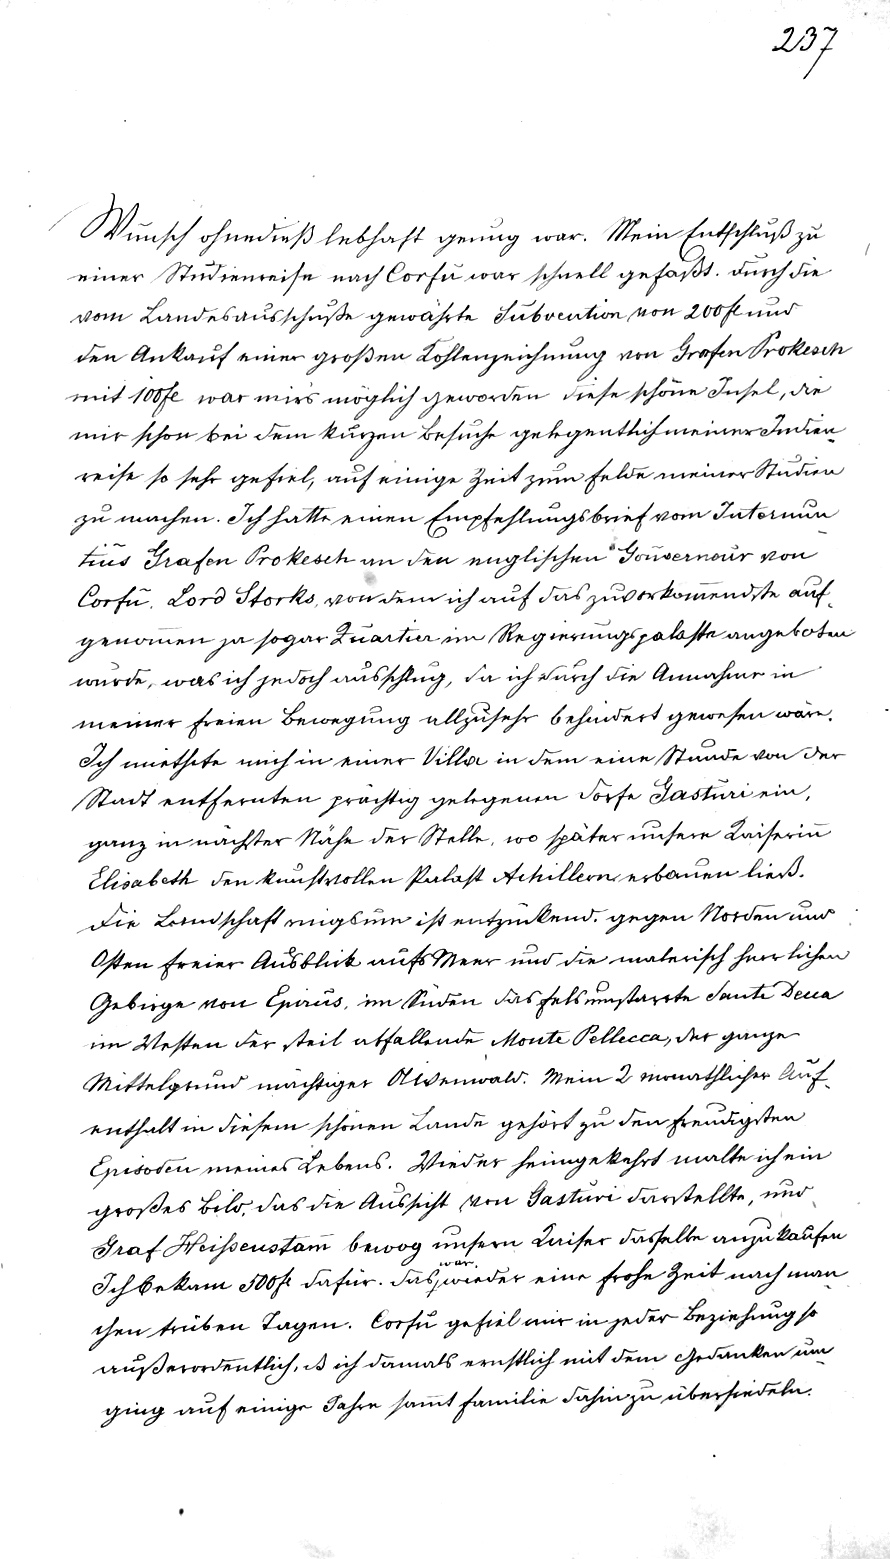 237
Wunsch ohnedieß lebhaft genug war. Mein Entschluß zu
einer Studienreise nach Corfu war schnell gefaßt. Durch die
vom Landesausschuße gewährte Subvention von 200fl und
den Ankauf einer großen Kohlenzeichnung von Grafen Prokesch
mit 100fl war mir's möglich geworden diese schöne Insel, die
mir schon bei dem kurzen Besuche gelegentlich meiner Indien-
reise so sehr gefiel, auf einige Zeit zum Felde meiner Studien
zu machen. Ich hatte einen Empfehlungsbrief vom Internun-
tius Grafen Prokesch an den englischen Gouverneur von
Corfu, Lord Storks, von dem ich auf das zuvorkom̅endste auf-
genom̅en ja sogar Quartier im Regierungspalaste angeboten
wurde, was ich jedoch ausschlug, da ich durch die Annahme in
meiner freien Bewegung allzusehr behindert gewesen wäre.
Ich miethete mich in einer Villa in dem eine Stunde von der
Stadt entfernten prächtig gelegenen Dorfe Gasturi ein,
ganz in nächster Nähe der Stelle, wo später unsere Kaiserin̅
Elisabeth den kunstvollen Palast Achilleon erbauen ließ.
Die Landschaft ringsum ist entzückend. gegen Norden und
Osten freier Ausblick aufs Meer und die malerisch herrlichen
Gebirge von Epirus, im Süden das felsumstarrte Santi Decca
im Westen der steil abfallende Monte Pellecca, der ganze
Mittelgrund mächtiger Olivenwald. Mein 2 monathlicher Auf-
enthalt in diesem schönen Lande gehört zu den freudigsten
Episoden meines Lebens. Wieder heimgekehrt malte ich ein
großes Bild, das die Aussicht von Gasturi darstellte, und
Graf Heissenstam̅ bewog unsern Kaiser dasselbe anzukaufen
Ich bekam 500fl dafür. Das war wieder eine frohe Zeit nach man-
chen trüben Tagen. Corfu gefiel mir in jeder Beziehung so
außerordentlich, ich damals ernstlich mit dem Gedanken um-
ging auf einige Jahre sam̅t Familie dahin zu übersiedeln.